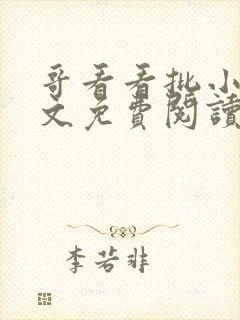 哥看看批小
文免費閱讀
李若非